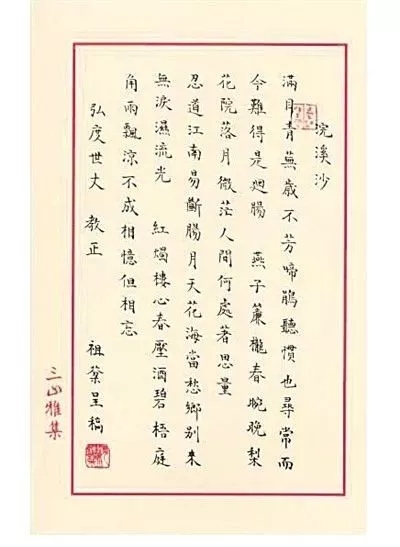 浣溪沙
滿目青蕪歲不芳啼鵑聽慣也尋常而
今難得是廻腸 燕子簾櫳春晼晚梨
花院落月微茫人間何處著思量
忍道江南易斷腸月天花海當愁鄉別來
無淚濕流光 紅燭樓心春壓酒碧梧庭
角雨飄涼不成相憶但相忘
弘度世丈 教正
祖棻呈稿
三山雅集